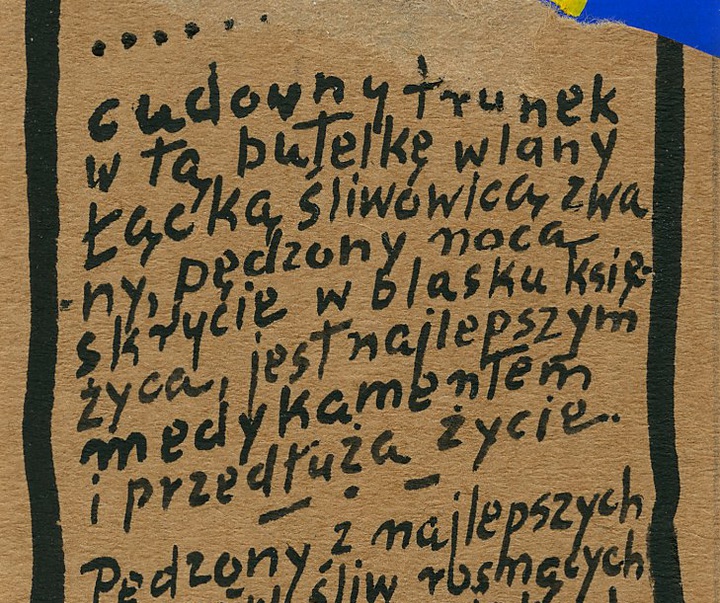 ......
cudowny trunek
w tą butelkę wlany
Łącką śliwowicą zwa
ny, pędzony nocą
skrycie w blasku księ-
życa, jest najlepszym
medykamentem
i przedłuża życie.
— . —
Pędzony z najlepszych
śliw rosnących